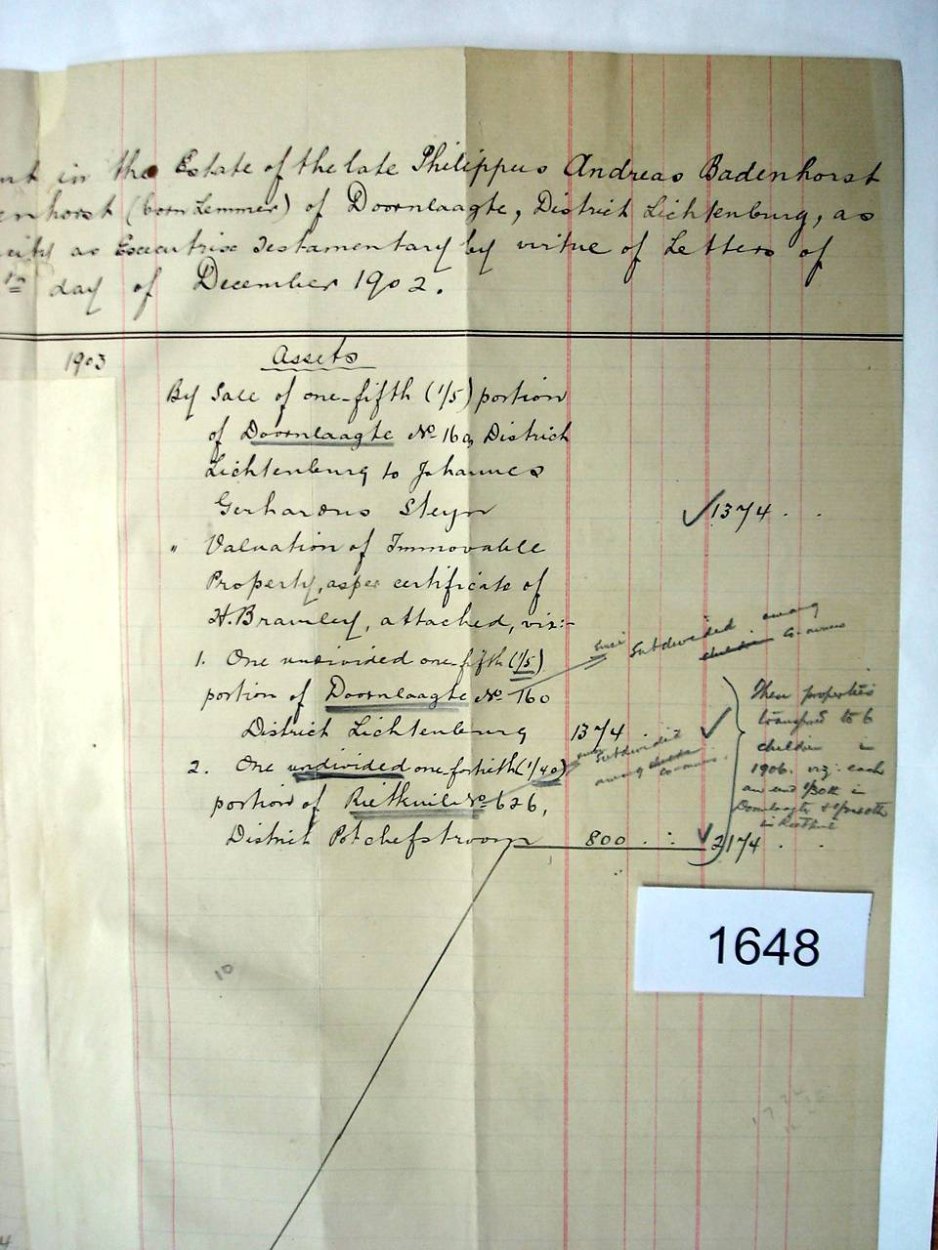 in the Estate of the late Philippus Andreas Badenhorst
enhorst (born Lemmer) of Doornlaagte, District Lichtenburg, as
as Executrix Testamentary by virtue of Letters of
day of December 1902.
1903
Assets
By Sale of one-fifth (1/5) portion
of Doornlaagte No 160, District
Lichtenburg to Johannes
Gerhardus Steyn ✓1374 . .
" Valuation of Immovable
Property, as per certificate of
H. Bramley, attached, viz:-
1. One undivided one-fifth (1/5)
portion of Doornlaagte No 160
District Lichtenburg 1374 ✓
2. One undivided one-fortieth (1/40)
portion of Rietkuil No 626,
District Potchefstroom 800 . : ✓ 2174 . .
Subdivided among
children
Subdivided
among children
These properties
transfd to 6
children in
1906. viz: each
an und 1/30th in
Doornlaagte &
in Rietkuil
10
1648